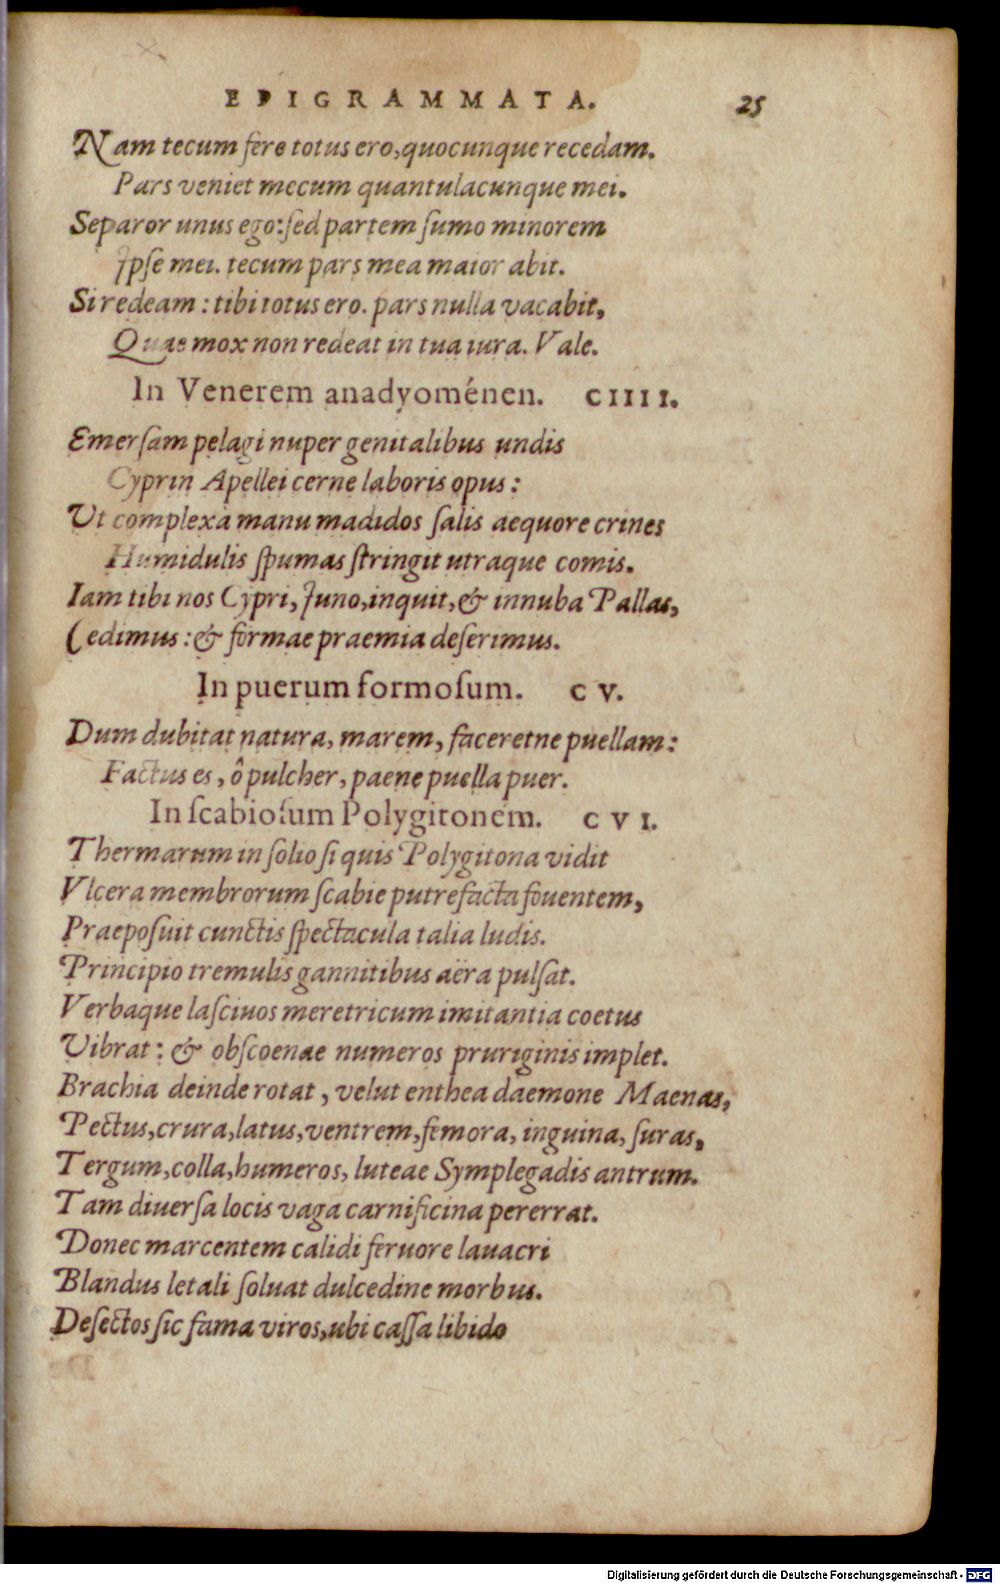 EPIGRAMMATA. 25
Nam tecum fere totus ero, quocunque recedam.
Pars veniet mecum quantulacunque mei.
Separor unus ego: ſed partem ſumo minorem
Ipſe mei. tecum pars mea maior abit.
Si redeam: tibi totus ero. pars nulla vacabit,
Quae mox non redeat in tua iura. Vale.
In Venerem anadyoménen. CIIII.
Emerſam pelagi nuper genitalibus undis
Cyprin Apellei cerne laboris opus:
Ut complexa manu madidos ſalis aequore crines
Humidulis ſpumas ſtringit utraque comis.
Iam tibi nos Cypri, Juno, inquit, & innuba Pallas,
Cedimus: & formae praemia deſerimus.
In puerum formoſum. CV.
Dum dubitat natura, marem, faceretne puellam:
Factus es, ô pulcher, paene puella puer.
In ſcabioſum Polygitonem. CVI.
Thermarum in ſolio ſi quis Polygitona vidit
Vlcera membrorum ſcabie putrefacta fouentem,
Praepoſuit cunctis ſpectacula talia ludis.
Principio tremulis gannitibus aëra pulſat.
Verbaque laſciuos meretricum imitantia coetus
Vibrat: & obſcoenae numeros pruriginis implet.
Brachia deinde rotat, velut enthea daemone Maenas,
Pectus, crura, latus, ventrem, femora, inguina, ſuras,
Tergum, colla, humeros, luteae Symplegadis antrum.
Tam diuerſa locis vaga carnificina pererrat.
Donec marcentem calidi feruore lauacri
Blandus letali ſoluat dulcedine morbus.
Deſectos ſic fama viros, ubi caſſa libido
Digitalisierung gefördert durch die Deutsche Forschungsgemeinschaft - DFG